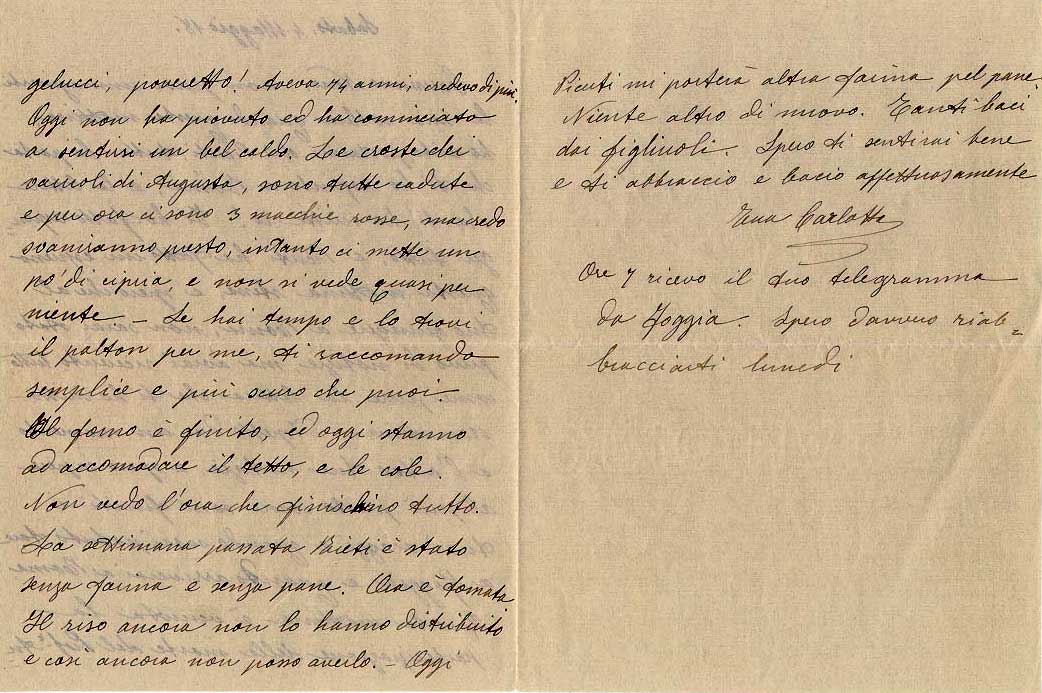 gelucci, poveretto! Aveva 74 anni, credevo di più.
Oggi non ha piovuto ed ha cominciato
a sentirsi un bel caldo. Le croste dei
vaioli di Augusta, sono tutte cadute
e per ora ci sono 3 macchie rosse, ma credo
svaniranno presto, intanto ci mette un
po' di cipria, e non si vede quasi per
niente – Se hai tempo e lo trovi
il palton per me, ti raccomando
semplice e più scuro che puoi.
Il forno è finito, ed oggi stanno
ad accomodare il tetto, e le cole.
Non vedo l'ora che finischino tutto.
La settimana passata Rieti è stato
senza farina e senza pane. Ora è tornata
Il riso ancora non lo hanno distribuito
e così ancora non posso averlo. – Oggi
mi porterà altra farina pel pane.
Niente altro di nuovo. Tanti baci
dai figliuoli. Spero ti sentirai bene
e ti abbraccio e bacio affettuosamente
Tua Carlotta
Ore 7 ricevo il tuo telegramma
da Foggia. Spero davvero riab=
bracciarti lunedì
Sabato, 4 Maggio 18.